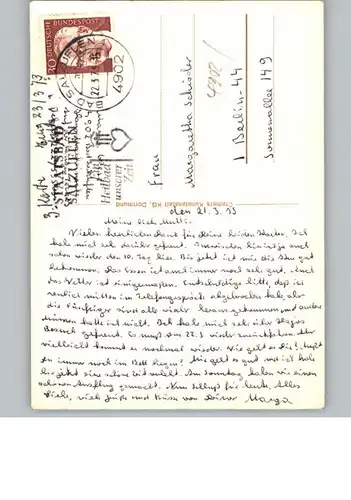 30 DEUTSCHE BUNDESPOST
BAD SALZUFLEN
22.3.73
4902
3. Karte 23/3 73
STAATSBAD
SALZUFLEN
Ein
Heilbad
unserer
Zeit
4902
Frau
Margaretha Schröder
1 Berlin-44
Sonnenallee 149
Cramers Kunstanstalt KG, Dortmund
den 21.3.73
Meine lieb Mutti!
Vielen herzlichen Dank für Deine beiden Karten. Ich
habe mich sehr darüber gefreut. Inzwischen bin ich ja auch
schon wieder den 10. Tag hier. Bis jetzt ist mir die Kur gut
bekommen. Das Essen ist auch immer noch sehr gut. Auch
das Wetter ist einigermaßen. Entschuldige bitte, daß ich
neulich mitten im Telefongespräch abgebrochen habe, aber
die Fünfziger sind alle wieder herausgekommen und andere
Münzen hatte ich nicht. Ich habe mich sehr über
Besuch gefreut. Er muß am 22.3. wieder zurückfahren. Aber
vielleicht kommt er nochmal wieder. Wie geht es Dir? Mußt
Du immer noch im Bett liegen? Mir geht es gut und ich habe
bis jetzt eine schöne Zeit verlebt. Am Sonntag haben wir einen
schönen Ausflug gemacht. Nun Schluß für heute. Alles
Liebe, viele Grüße und Küsse von Deiner Marga